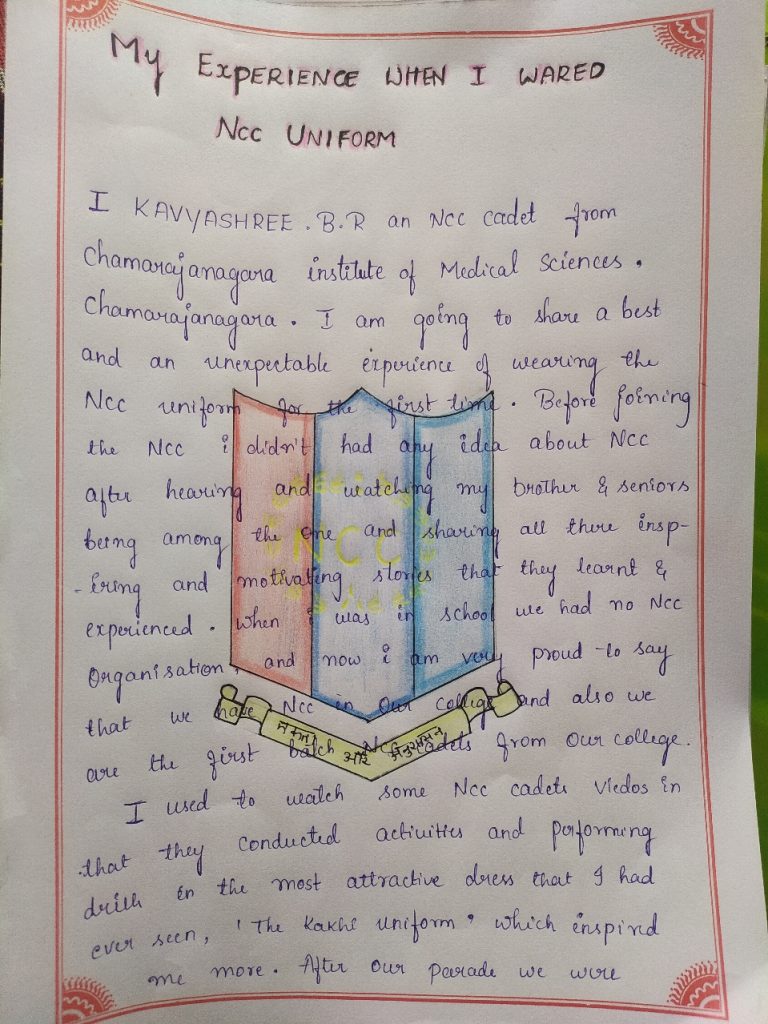 My EXPERIENCE WHEN I WARED
NCC UNIFORM
I KAVYASHREE . B.R an NCC cadet from
Chamarajanagara institute of Medical Sciences .
Chamarajanagara . I am going to share a best
and an unexpectable experience of wearing the
NCC uniform for the first time . Before joining
the NCC i didn't had any idea about NCC
after hearing and watching my brother & seniors
being among the one and sharing all there insp-
-iring and motivating stories that they learnt &
experienced . when i was in school we had no NCC
Organisation, and now i am very proud to say
that we have NCC in our college and also we
are the first batch NCC cadets from our college.
NCC
एकता और अनुशासन
I used to watch some NCC cadets viedos in
that they conducted activities and performing
drill in the most attractive dress that I had
ever seen, 'The Kakhi uniform' which inspired
me more . After our parade we were